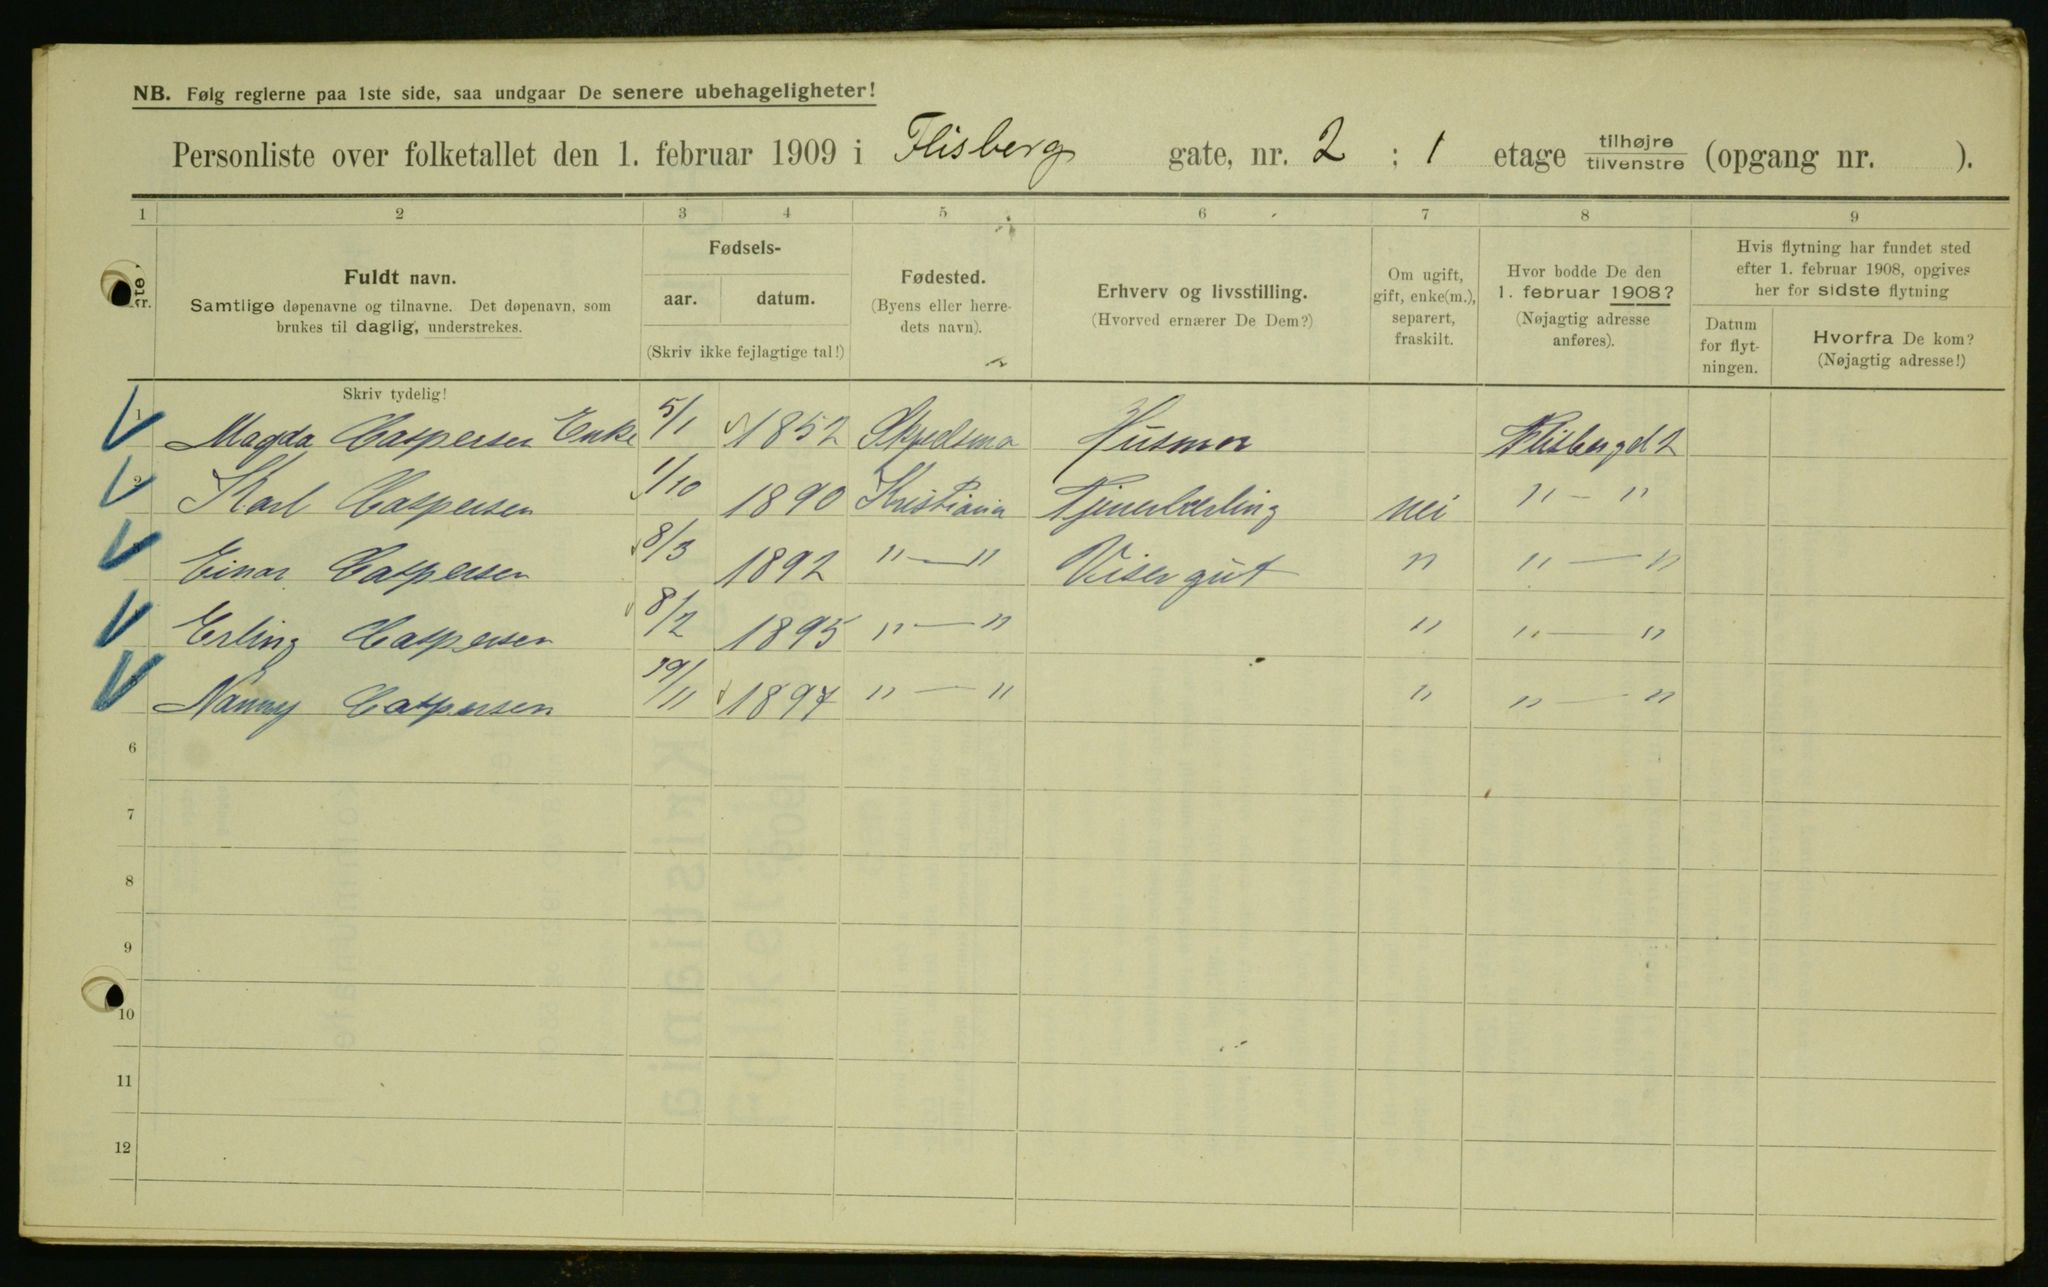 NB. Følg reglerne paa 1ste side, saa undgaar De senere ubehageligheter!
Personliste over folketallet den 1. februar 1909 i Flisberg gate, nr. 2 ; 1 etage tilhøjre tilvenstre (opgang nr. ).
1 2 3 4 5 6 7 8 9
Fuldt navn.
Samtlige døpenavne og tilnavne. Det døpenavn, som
brukes til daglig, understrekes.
Fødsels-
aar. datum.
(Skriv ikke fejlagtige tal!)
Fødested.
(Byens eller herre-
dets navn).
Erhverv og livsstilling.
(Hvorved ernærer De Dem?)
Om ugift,
gift, enke(m.),
separert,
fraskilt.
Hvor bodde De den
1. februar 1908?
(Nøjagtig adresse
anføres).
Hvis flytning har fundet sted
efter 1. februar 1908, opgives
her for sidste flytning
Datum
for flyt-
ningen.
Hvorfra De kom?
(Nøjagtig adresse!)
Skriv tydelig!
1 Magda Caspersen Enke 5/1 1852 Husmor Flisbergd 2
2 Karl Caspersen 1/10 1890 Kristiania nei " — "
Einar Caspersen 8/3 1892 " — " Visergut " " — "
Erling Caspersen 8/2 1895 " — " " " — "
Nanny Caspersen /11 1897 " — " " " — "
6
7
8
9
10
11
12